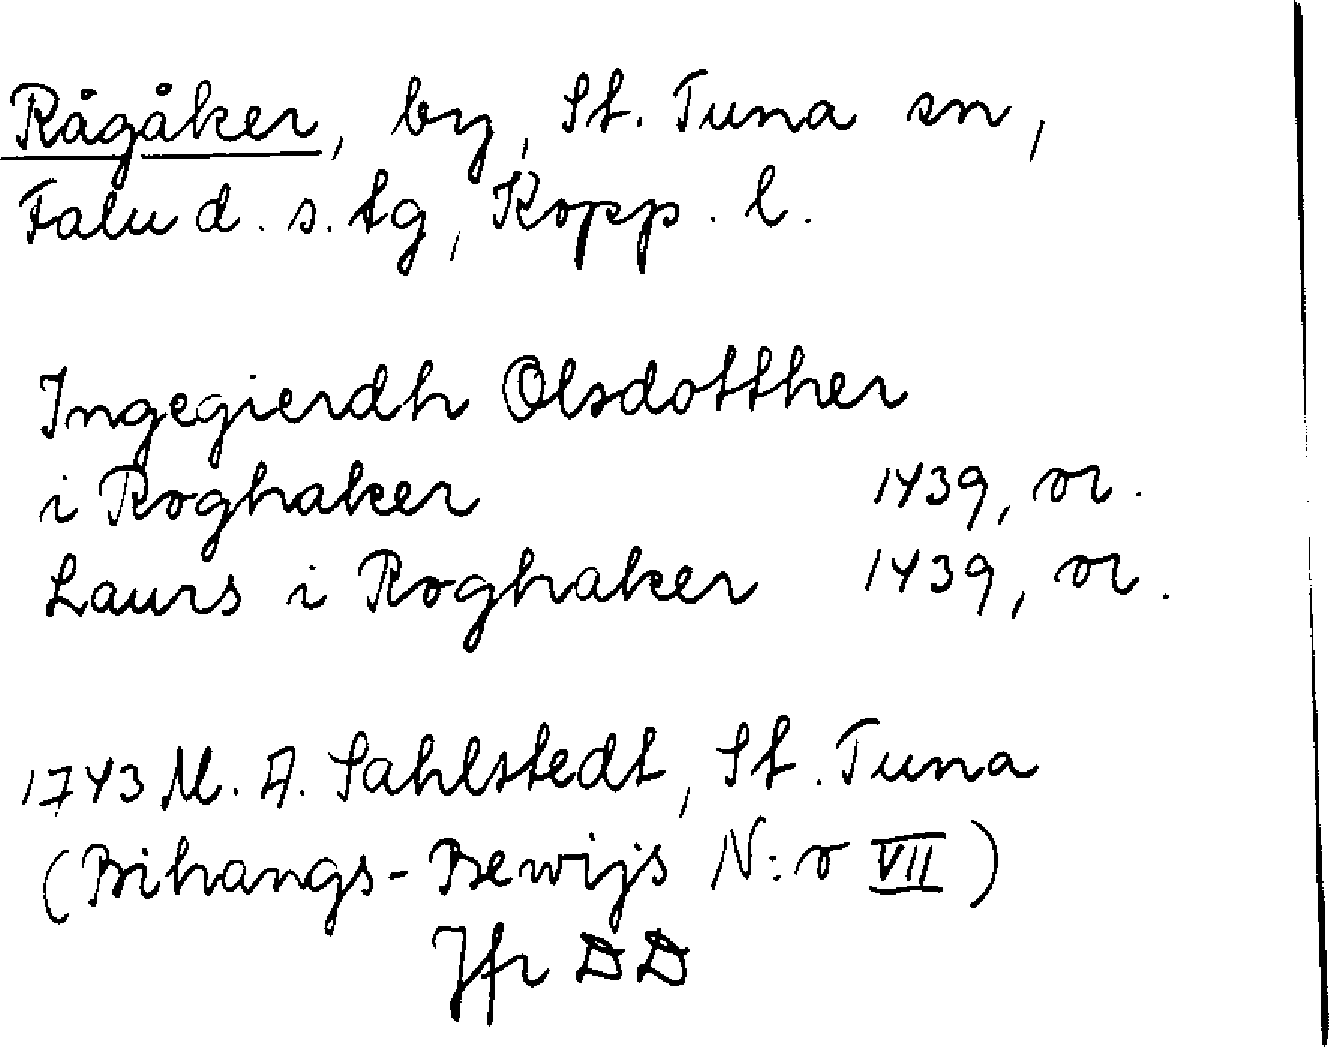 Rågåker, by, St. Tuna sn,
Falu d. s. tg, Kopp. l.
Ingegierdh Olsdotther
i Roghaker 1439, or.
Laurs i Roghaker 1439, or.
1743 M. A. Sahlstedt, St. Tuna
(Bihangs-Bewijs N:o VII)
Jfr DD